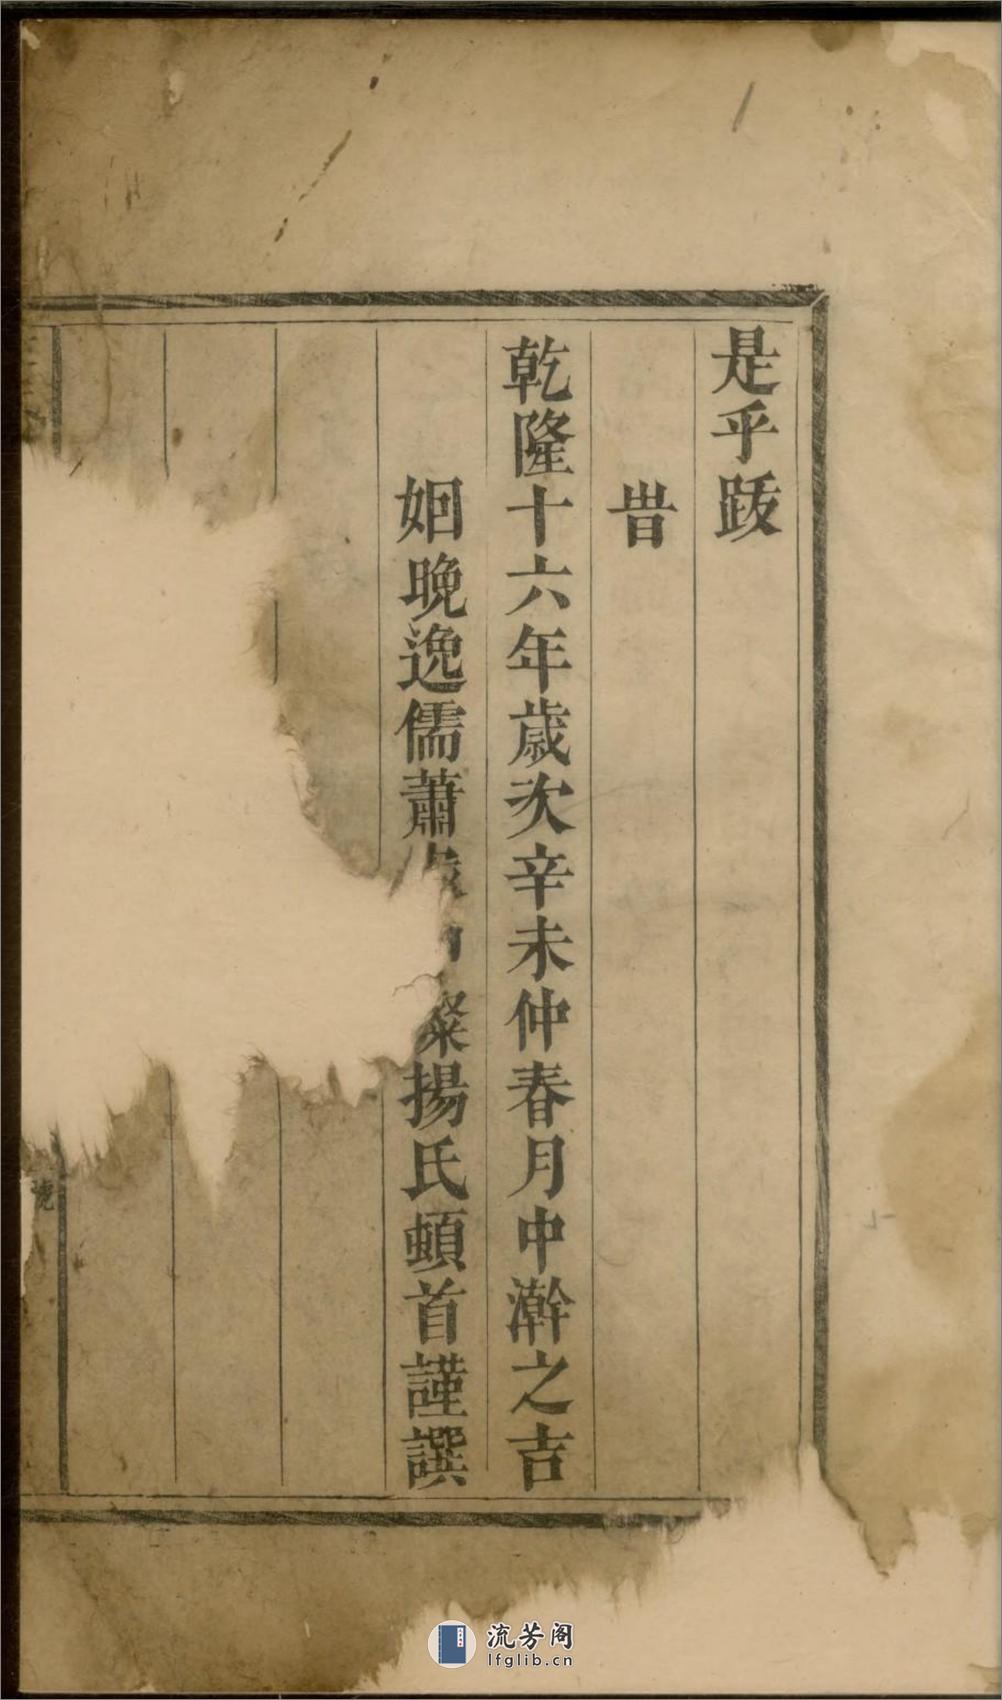 是乎跋
旹
乾隆十六年歲次辛未仲春月中澣之吉
姻晚逸儒蕭粲揚氏頓首謹譔
號
流芳阁
lfglib.cn